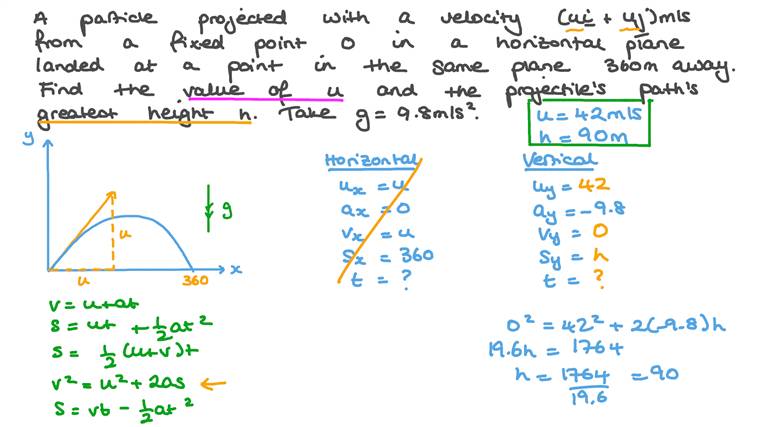 A particle projected with a velocity (ui + uj)m/s
from a fixed point O in a horizontal plane
landed at a point in the same plane 360m away.
Find the value of u and the projectile's path's
greatest height h. Take g = 9.8m/s².
u = 42m/s
h = 90m
y
g
u
u
360
x
Horizontal
uₓ = u
aₓ = 0
vₓ = u
sₓ = 360
t = ?
Vertical
u_y = 42
a_y = -9.8
v_y = 0
s_y = h
t = ?
v = u + at
s = ut + 1/2 at²
s = 1/2 (u+v)t
v² = u² + 2as ←
s = vt - 1/2 at²
0² = 42² + 2(-9.8)h
19.6h = 1764
h = 1764/19.6 = 90